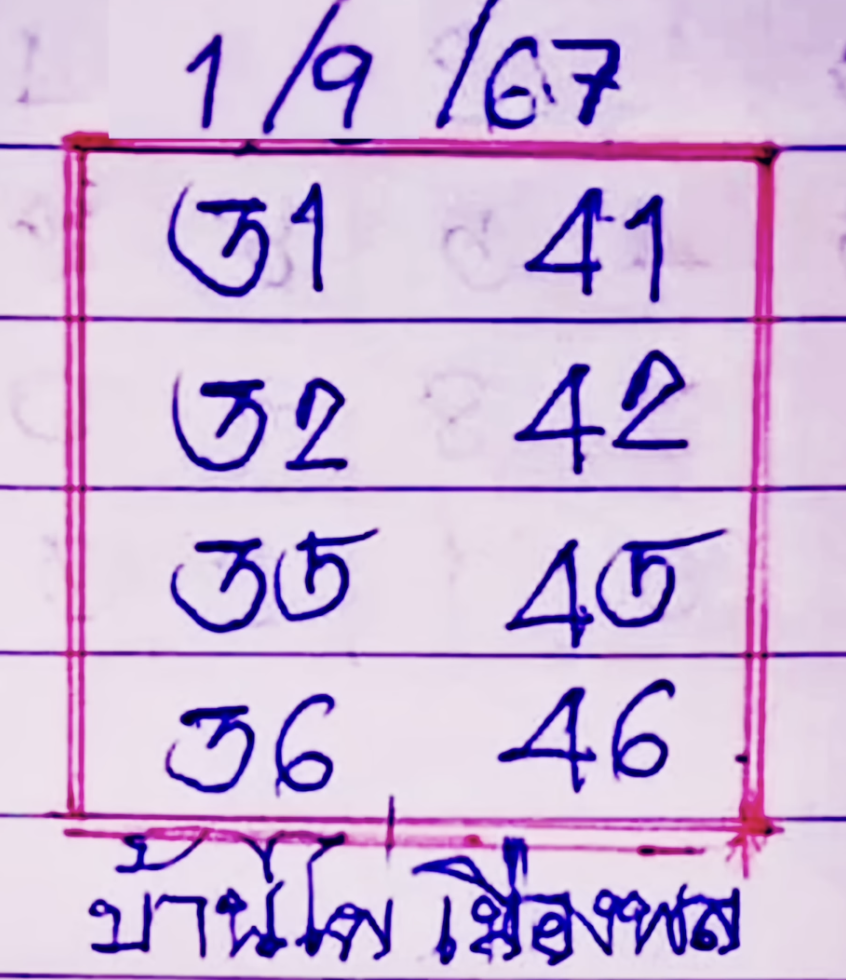 1/9/67
31 41
32 42
35 45
36 46
บ้านไผ่ เมืองพล